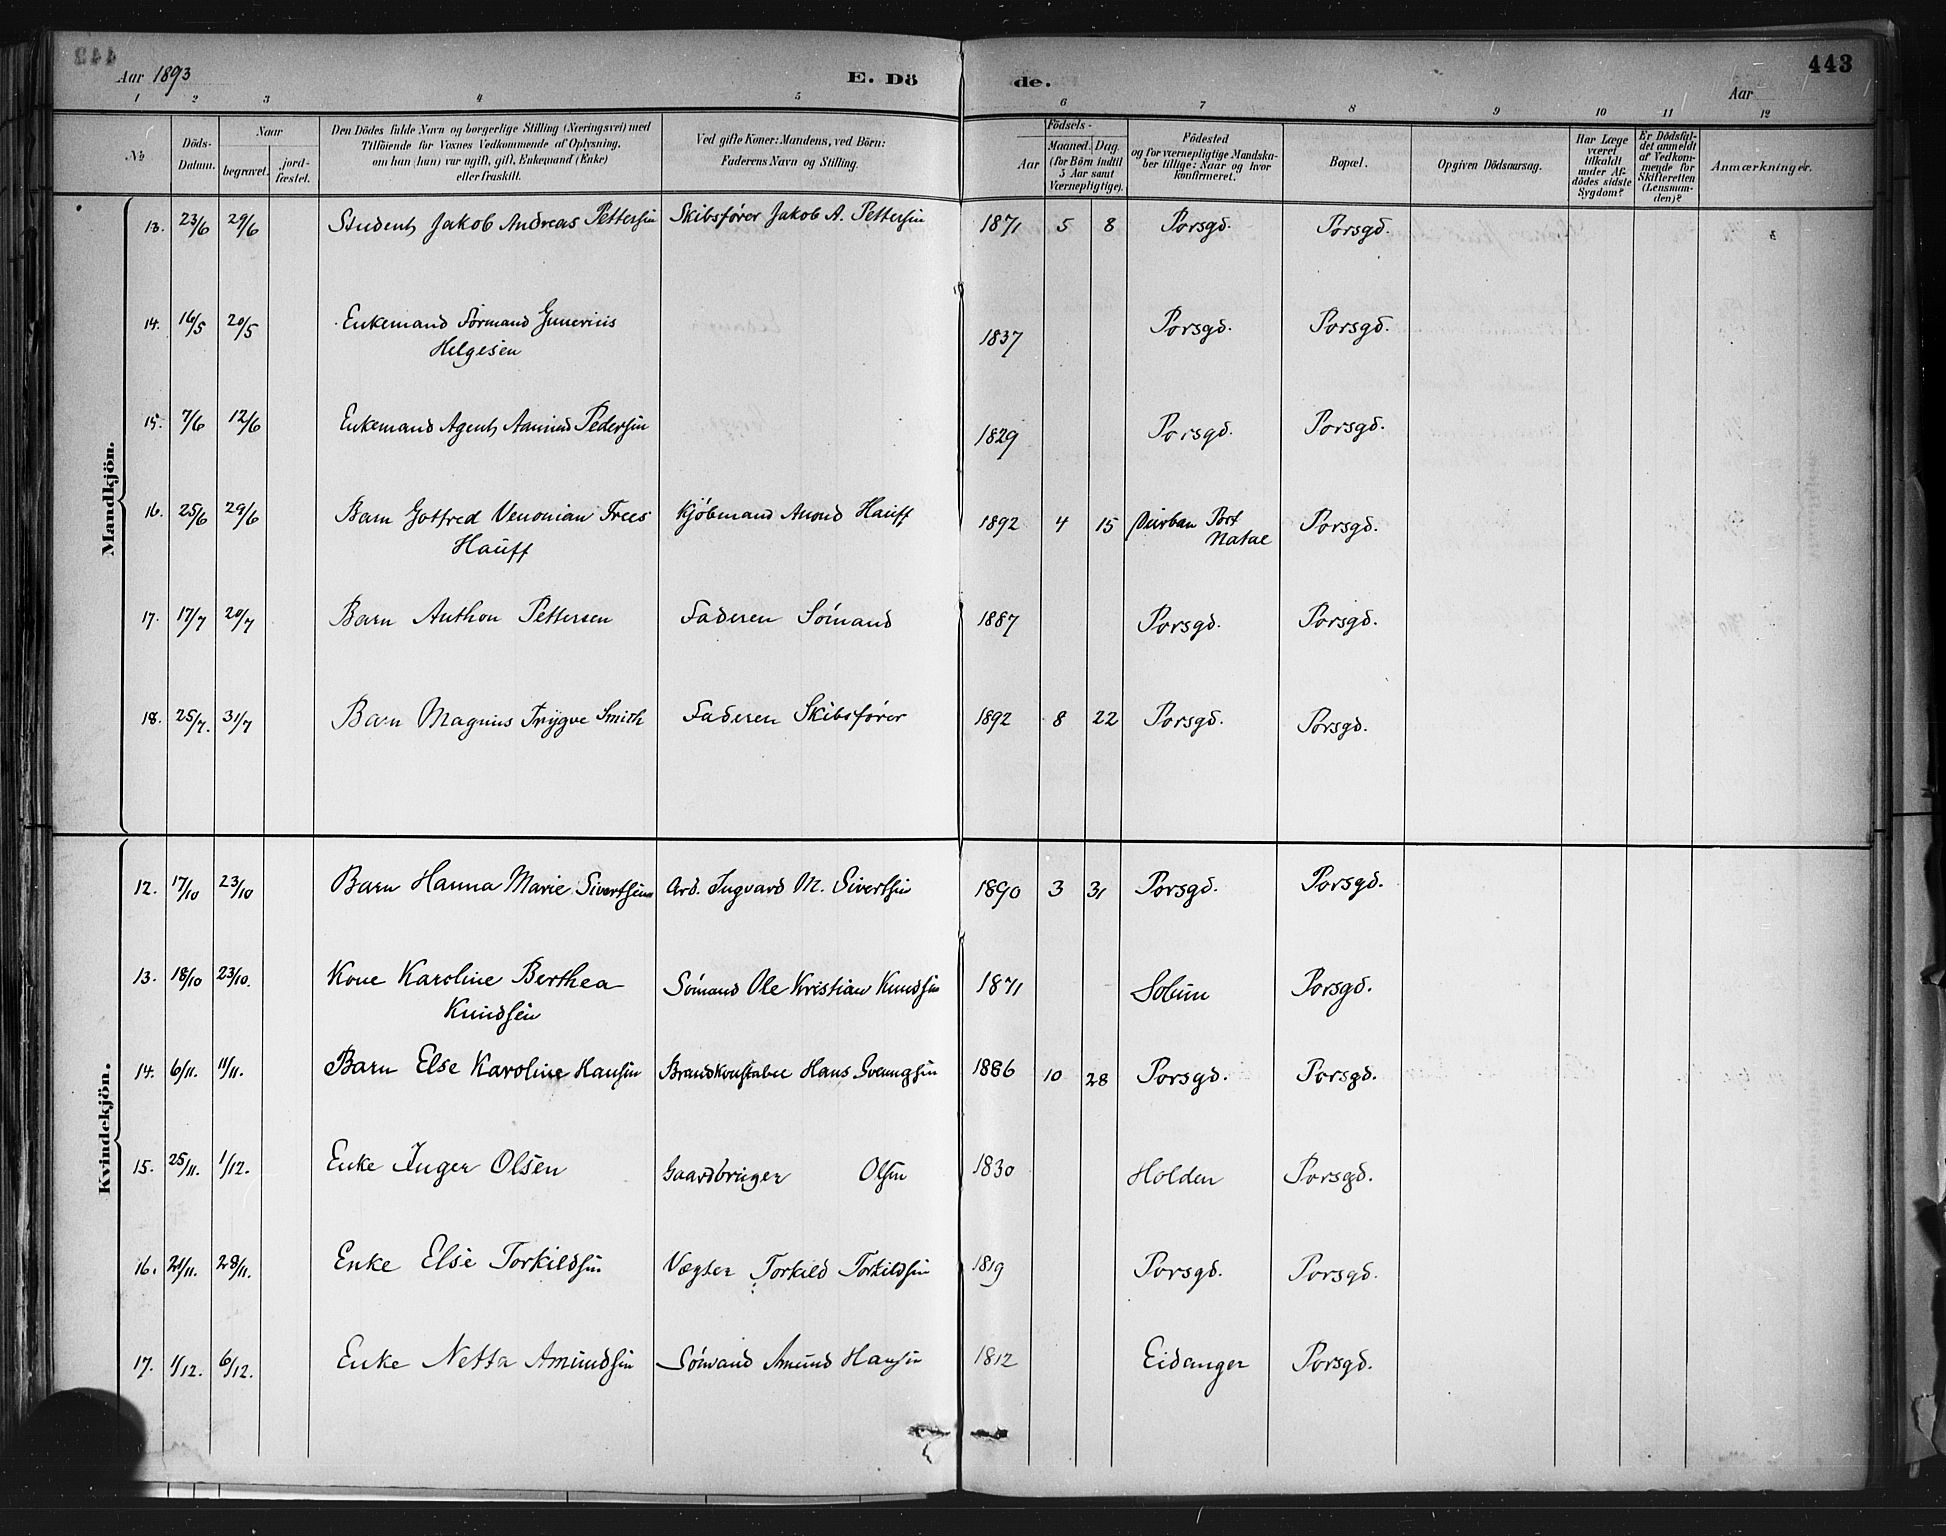 443
Aar 1893
E. Dö
de.
Aar
443
1 2 3 4 5 6 7 8 9 10 11 12
No
Döds-
Datum.
Naar
begravet.
jord-
fæstet.
Den Dödes fulde Navn og borgerlige Stilling (Næringsvei) med
Tilföiende for Voxnes Vedkommende af Oplysning,
om han (hun) var ugift, gift, Enkemand (Enke)
eller fraskilt.
Ved gifte Koner: Mandens, ved Börn:
Faderens Navn og Stilling.
Födsels-
Aar
Maaned. Dag
(for Börn indtil
5 Aar samt
Værnepligtige).
Födested
og for værnepligtige Mandska-
ber tillige: Naar og hvor
konfirmeret.
Bopæl.
Opgiven Dödsaarsag.
Har Læge
været
tilkaldt
under Af-
dödes sidste
Sygdom?
Er Dödsfal-
det anmeldt
af Vedkom-
mende for
Skifteretten
(Lensman-
den)?
Anmærkninger.
Mandkjön.
13. 23/6 29/6 Student Jakob Andreas Pettersen Skibsfører Jakob A. Pettersen 1871 5 8 Porsgd. Porsgd.
14. 16/5 20/5 Enkemand Formand Gunerius
Helgesen 1837 Porsgd. Porsgd.
15. 7/6 12/6 Enkemand Agent Aamund Pedersen 1829 Porsgd. Porsgd.
16. 25/6 29/6 Barn Gotfred Venonian Trees
Hauff Kjøbmand Anond Hauff 1892 4 15 Durban Port
Natal Porsgd.
17. 17/7 20/7 Barn Anthon Pettersen Faderen Sømand 1887 Porsgd. Porsgd.
18. 25/7. 31/7 Barn Magnus Trygve Smith Faderen Skibsfører 1892 8 22 Porsgd. Porsgd.
Kvindekjön.
12. 17/10 23/10 Barn Hanna Marie Sivertsen Arb. Ingvard M. Sivertsen 1890 3 31 Porsgd. Porsgd.
13. 18/10 23/10. Kone Karoline Berthea
Knudsen Sømand Ole Kristian Knudsen 1871 Solum Porsgd.
14. 6/11. 11/11. Barn Else Karoline Hansen Brandkonstabel Hans Svenungsen 1886 10 28 Porsgd. Porsgd.
15. 25/11. 1/12. Enke Inger Olsen Gaardbruger Olsen 1830 Holden Porsgd.
16. 21/11. 28/11. Enke Else Torkildsen Vægter Torkild Torkildsen 1819 Porsgd. Porsgd.
17. 1/12. 6/12. Enke Netta Amundsen Sømand Amund Hansen 1812 Eidanger Porsgd.